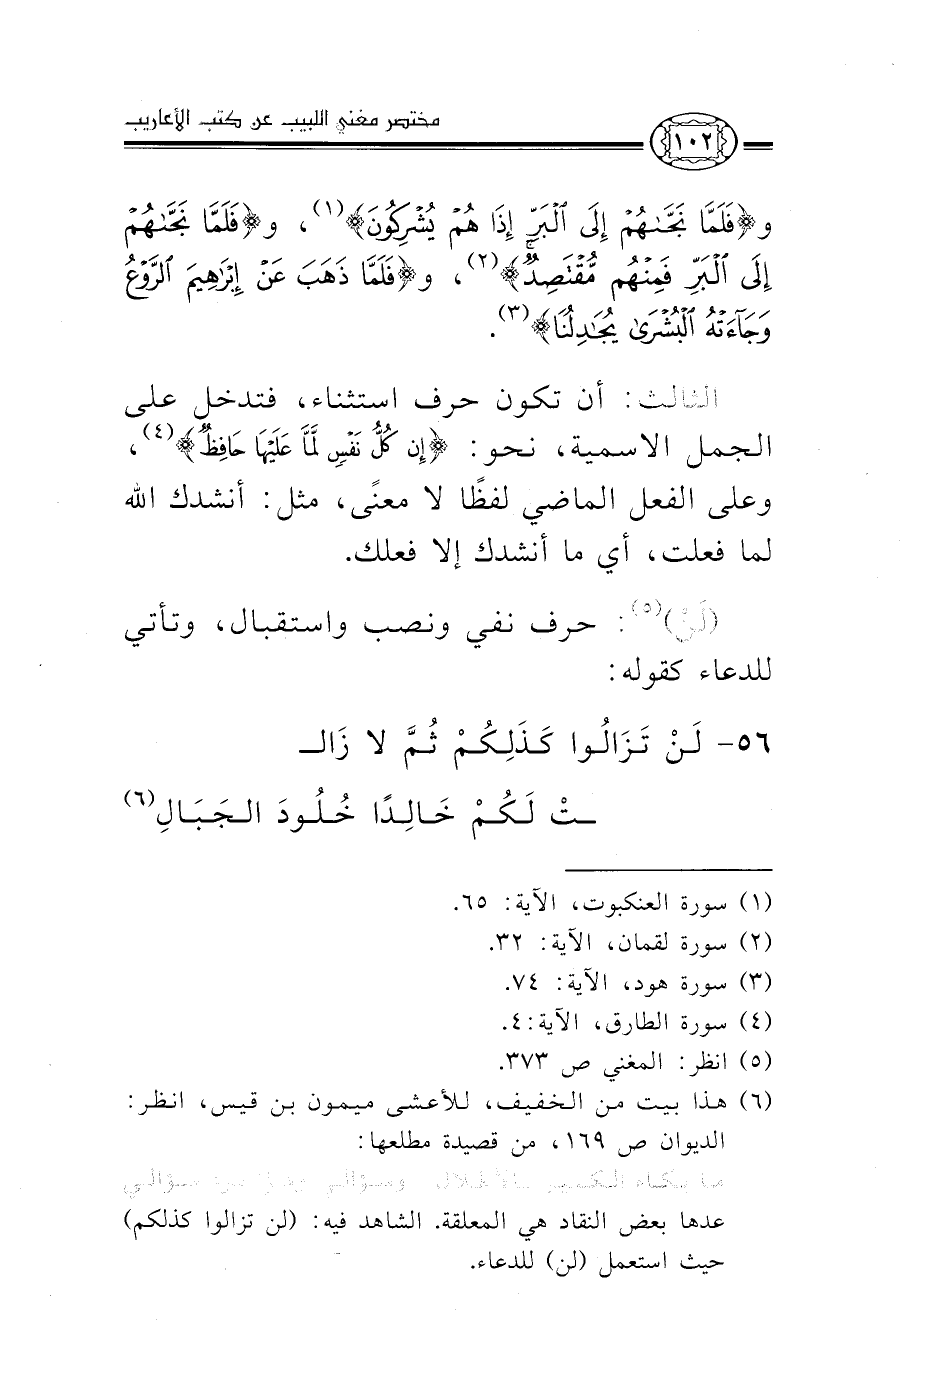 مختصر مغني اللبيب عن كتب الأعاريب
١٠٢
و﴿فَلَمَّا نَجَّىٰهُمْ إِلَى ٱلْبَرِّ إِذَا هُمْ يُشْرِكُونَ﴾(١)، و﴿فَلَمَّا نَجَّىٰهُمْ
إِلَى ٱلْبَرِّ فَمِنْهُم مُّقْتَصِدٌ﴾(٢)، و﴿فَلَمَّا ذَهَبَ عَنْ إِبْرَٰهِيمَ ٱلرَّوْعُ
وَجَآءَتْهُ ٱلْبُشْرَىٰ يُجَٰدِلُنَا﴾(٣).
الثالث: أن تكون حرف استثناء، فتدخل على
الجمل الاسمية، نحو: ﴿إِن كُلُّ نَفْسٍ لَّمَّا عَلَيْهَا حَافِظٌ﴾(٤)،
وعلى الفعل الماضي لفظًا لا معنًى، مثل: أنشدك الله
لما فعلت، أي ما أنشدك إلا فعلك.
(لَنْ)(٥): حرف نفي ونصب واستقبال، وتأتي
للدعاء كقوله:
٥٦- لَنْ تَزَالُوا كَذَلِكُمْ ثُمَّ لا زَالـ
ـتْ لَكُمْ خَالِدًا خُلُودَ الجَبَالِ(٦)
(١) سورة العنكبوت، الآية: ٦٥.
(٢) سورة لقمان، الآية: ٣٢.
(٣) سورة هود، الآية: ٧٤.
(٤) سورة الطارق، الآية:٤.
(٥) انظر: المغني ص ٣٧٣.
(٦) هذا بيت من الخفيف، للأعشى ميمون بن قيس، انظر:
الديوان ص ١٦٩، من قصيدة مطلعها:
ما بكاء الكبير بالأطلال وسؤالي سؤالي
عدها بعض النقاد هي المعلقة. الشاهد فيه: (لن تزالوا كذلكم)
حيث استعمل (لن) للدعاء.